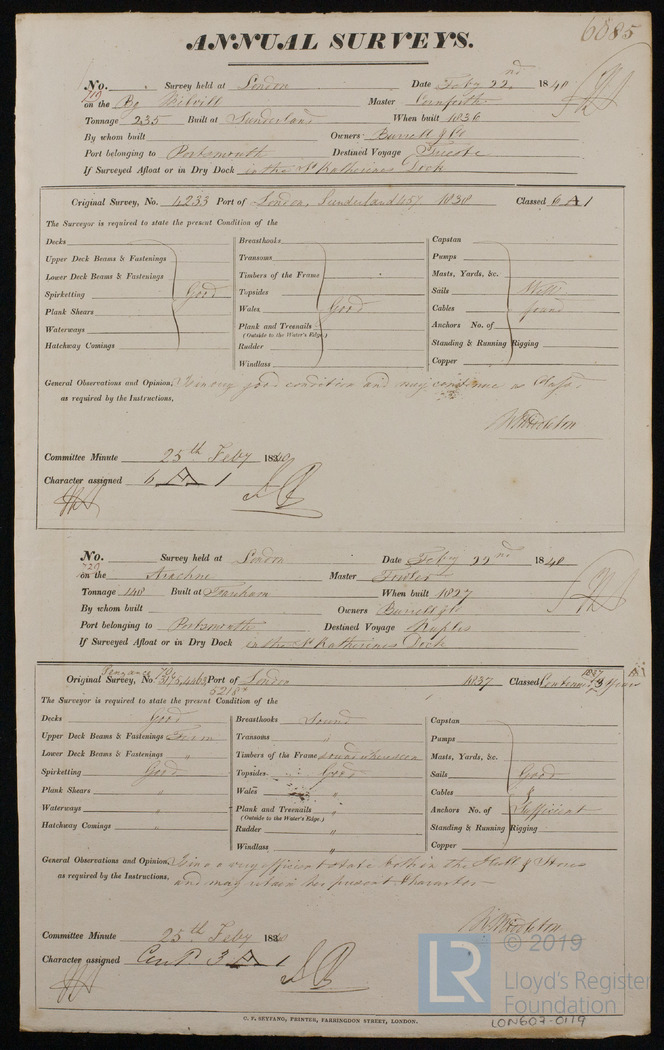 6885
ANNUAL SURVEYS.
No. 719 Survey held at London Date Feby 22nd 1840
on the Bg Melvill Master
Tonnage 235 Built at Sunderland When built 1836
By whom built Owners Burrell & Co
Port belonging to Portsmouth Destined Voyage Trieste
If Surveyed Afloat or in Dry Dock in the St Katherines Dock
Original Survey, No. 4233 Port of London, Sunderland 457 1838 Classed 6 A 1
The Surveyor is required to state the present Condition of the
Decks Breasthooks Capstan
Upper Deck Beams & Fastenings Transoms Pumps
Lower Deck Beams & Fastenings Timbers of the Frame Masts, Yards, &c.
Spirketting Good Topsides Sails Well
Plank Shears Wales Good Cables found
Waterways Plank and Treenails Anchors No. of
(Outside to the Water's Edge.)
Hatchway Comings Rudder Standing & Running Rigging
Windlass Copper
General Observations and Opinion, Is in very good condition and may continue as Class'd
as required by the Instructions,
Committee Minute 25th Feby 1840
Character assigned 6 A 1
No. 720 Survey held at London Date Feby 22nd 1840
on the Arachne Master Fowler
Tonnage 148 Built at Fareham When built 1827
By whom built Owners Burrell & Co
Port belonging to Portsmouth Destined Voyage Naples
If Surveyed Afloat or in Dry Dock in the St Katherines Dock
Penzance
Original Survey, No. 3175,4463 Port of London 1837 Classed 3 Years
5218
The Surveyor is required to state the present Condition of the
Decks Good Breasthooks Sound Capstan
Upper Deck Beams & Fastenings Firm Transoms " Pumps
Lower Deck Beams & Fastenings " Timbers of the Frame sound where seen Masts, Yards, &c.
Spirketting Good Topsides Good Sails Good
Plank Shears " Wales " Cables &
Waterways " Plank and Treenails " Anchors No. of Sufficient
(Outside to the Water's Edge.)
Hatchway Comings " Rudder " Standing & Running Rigging
Windlass " Copper
General Observations and Opinion, Is in a very efficient state both in the Hull & Stores
as required by the Instructions, and may retain her present Character
Committee Minute 25th Feby 1840
Character assigned Cont'd 3 A 1
LR © 2019
Lloyd's Register
Foundation
C. F. SEYFANG, PRINTER, FARRINGDON STREET, LONDON.
LON607-0119